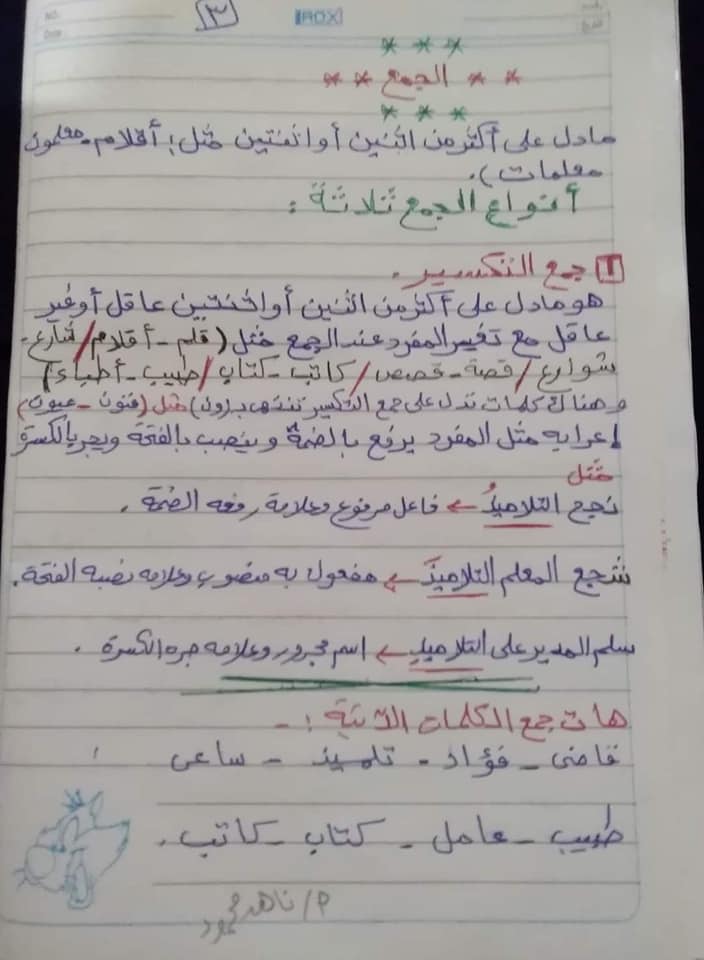 ٣
ROX
No.
Date
التاريخ
* * *
* * الجمع * *
* * *
مادل على أكثر من اثنين أو اثنتين مثل؛ أقلام - معلمون
معلمات).
أنواع الجمع ثلاثة :
1 جمع التكسير.
هو مادل على أكثر من اثنين أو اثنتين عاقل أو غير
عاقل مع تغيير المفرد عند الجمع مثل (قلم - أقلام/شارع-
شوارع/قصة-قصص/كاتب-كتاب/طبيب-أطباء)
وهناك كلمات تدل على جمع التكسير تنتهى ب(ون) مثل (فنون - عيون)
إعرابه مثل المفرد يرفع بالضمة وينصب بالفتحة ويجر بالكسرة
مثل
نجح التلاميذُ ← فاعل مرفوع وعلامة رفعه الضمة .
شجع المعلم التلاميذَ ← مفعول به منصوب وعلامه نصبه الفتحة.
سلم المدير على التلاميذِ ← اسم مجرور وعلامه جره الكسرة .
هات جمع الكلمات الآتية :-
قاضى - فؤاد - تلميذ - ساعى
طبيب - عامل - كتاب - كاتب .
م/ ناهد محمود